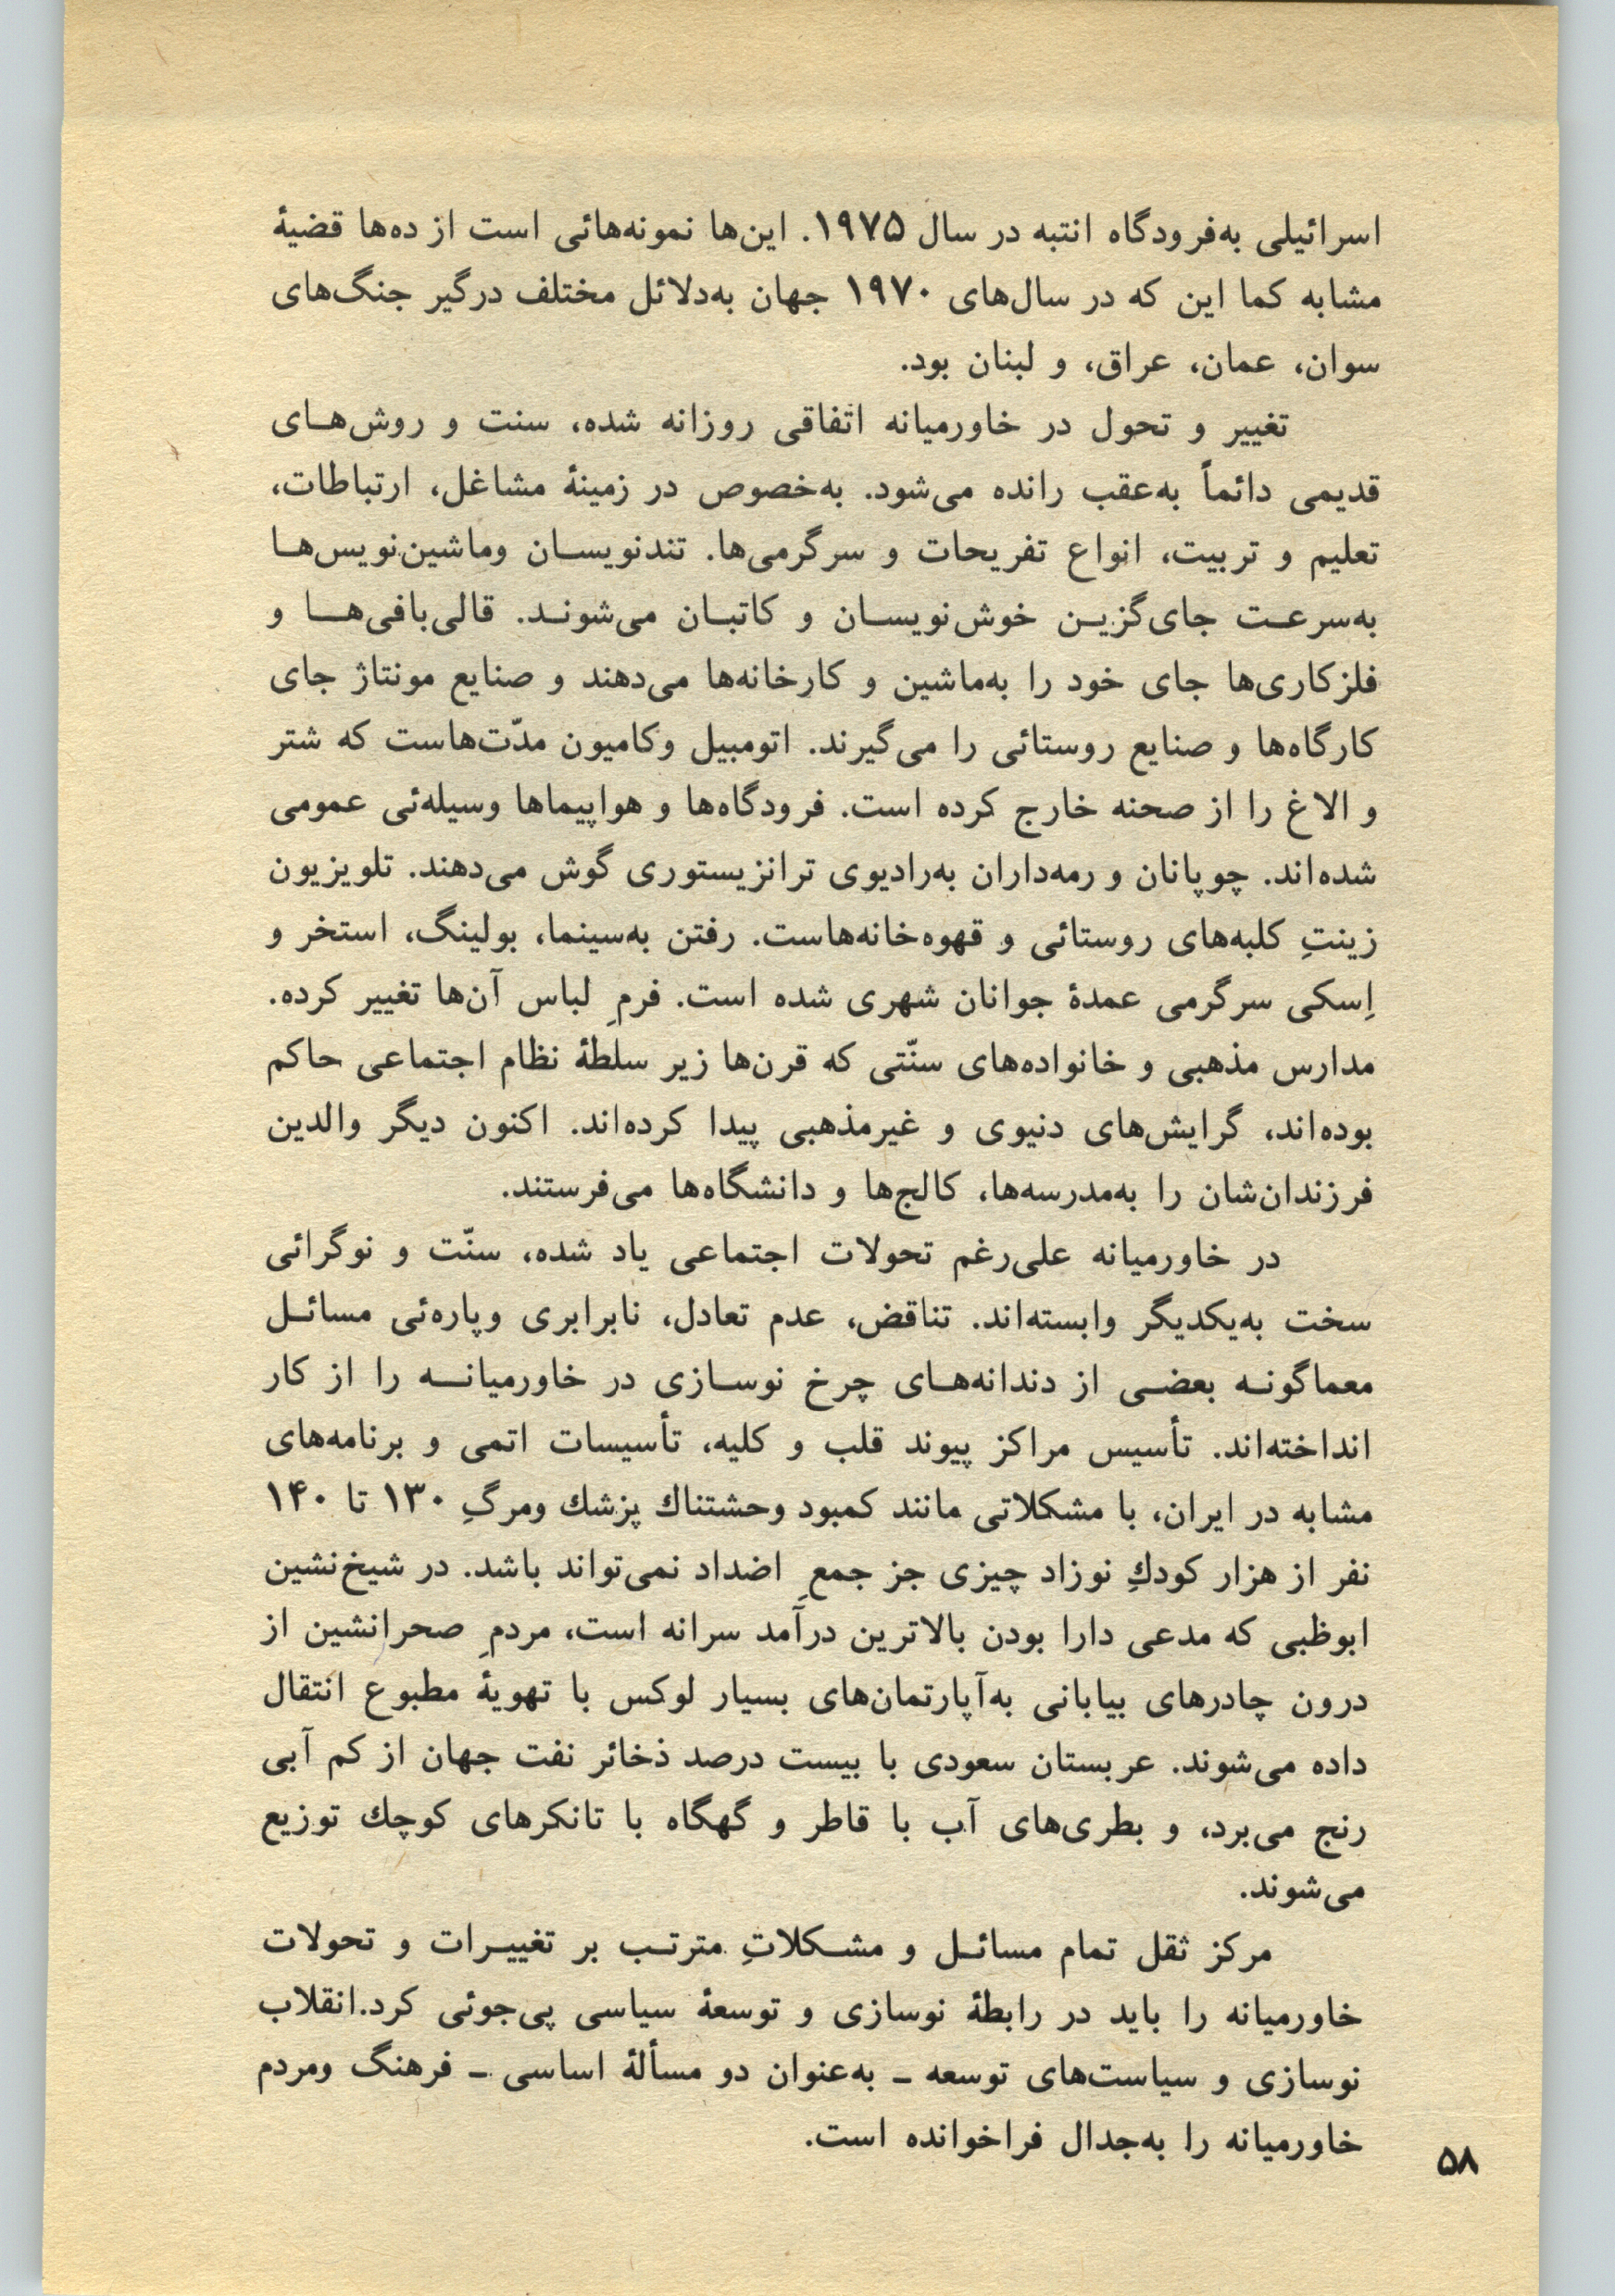 اسرائیلی به‌فرودگاه انتبه در سال ۱۹۷۵. این‌ها نمونه‌هائی است از ده‌ها قضیهٔ
مشابه کما این که در سال‌های ۱۹۷۰ جهان به‌دلائل مختلف درگیر جنگ‌های
سوان، عمان، عراق، و لبنان بود.
تغییر و تحول در خاورمیانه اتفاقی روزانه شده، سنت و روش‌هـای
قدیمی دائماً به‌عقب رانده می‌شود. به‌خصوص در زمینهٔ مشاغل، ارتباطات،
تعلیم و تربیت، انواع تفریحات و سرگرمی‌ها. تندنویسـان وماشین‌نویس‌هـا
به‌سرعـت جای‌گزیـن خوش‌نویسـان و کاتبـان می‌شونـد. قالی‌بافی‌هـا و
فلزکاری‌ها جای خود را به‌ماشین و کارخانه‌ها می‌دهند و صنایع مونتاژ جای
کارگاه‌ها و صنایع روستائی را می‌گیرند. اتومبیل وکامیون مدّت‌هاست که شتر
و الاغ را از صحنه خارج کرده است. فرودگاه‌ها و هواپیماها وسیله‌ئی عمومی
شده‌اند. چوپانان و رمه‌داران به‌رادیوی ترانزیستوری گوش می‌دهند. تلویزیون
زینتِ کلبه‌های روستائی و قهوه‌خانه‌هاست. رفتن به‌سینما، بولینگ، استخر و
اِسکی سرگرمی عمدهٔ جوانان شهری شده است. فرمِ لباس آن‌ها تغییر کرده.
مدارس مذهبی و خانواده‌های سنّتی که قرن‌ها زیر سلطهٔ نظام اجتماعی حاکم
بوده‌اند، گرایش‌های دنیوی و غیرمذهبی پیدا کرده‌اند. اکنون دیگر والدین
فرزندان‌شان را به‌مدرسه‌ها، کالج‌ها و دانشگاه‌ها می‌فرستند.
در خاورمیانه علی‌رغم تحولات اجتماعی یاد شده، سنّت و نوگرائی
سخت به‌یکدیگر وابسته‌اند. تناقض، عدم تعادل، نابرابری وپاره‌ئی مسائـل
معماگونـه بعضـی از دندانه‌هـای چرخ نوسـازی در خاورمیانـه را از کار
انداخته‌اند. تأسیس مراکز پیوند قلب و کلیه، تأسیسات اتمی و برنامه‌های
مشابه در ایران، با مشکلاتی مانند کمبود وحشتناك پزشك ومرگِ ۱۳۰ تا ۱۴۰
نفر از هزار کودكِ نوزاد چیزی جز جمعِ اضداد نمی‌تواند باشد. در شیخ‌نشین
ابوظبی که مدعی دارا بودن بالاترین درآمد سرانه است، مردمِ صحرانشین از
درون چادرهای بیابانی به‌آپارتمان‌های بسیار لوکس با تهویهٔ مطبوع انتقال
داده می‌شوند. عربستان سعودی با بیست درصد ذخائر نفت جهان از کم آبی
رنج می‌برد، و بطری‌های آب با قاطر و گهگاه با تانکرهای کوچك توزیع
می‌شوند.
مرکز ثقل تمام مسائـل و مشـکلاتِ مترتـب بر تغییـرات و تحولات
خاورمیانه را باید در رابطهٔ نوسازی و توسعهٔ سیاسی پی‌جوئی کرد.انقلاب
نوسازی و سیاست‌های توسعه ـ به‌عنوان دو مسألهٔ اساسی ـ فرهنگ ومردم
خاورمیانه را به‌جدال فراخوانده است.
۵۸